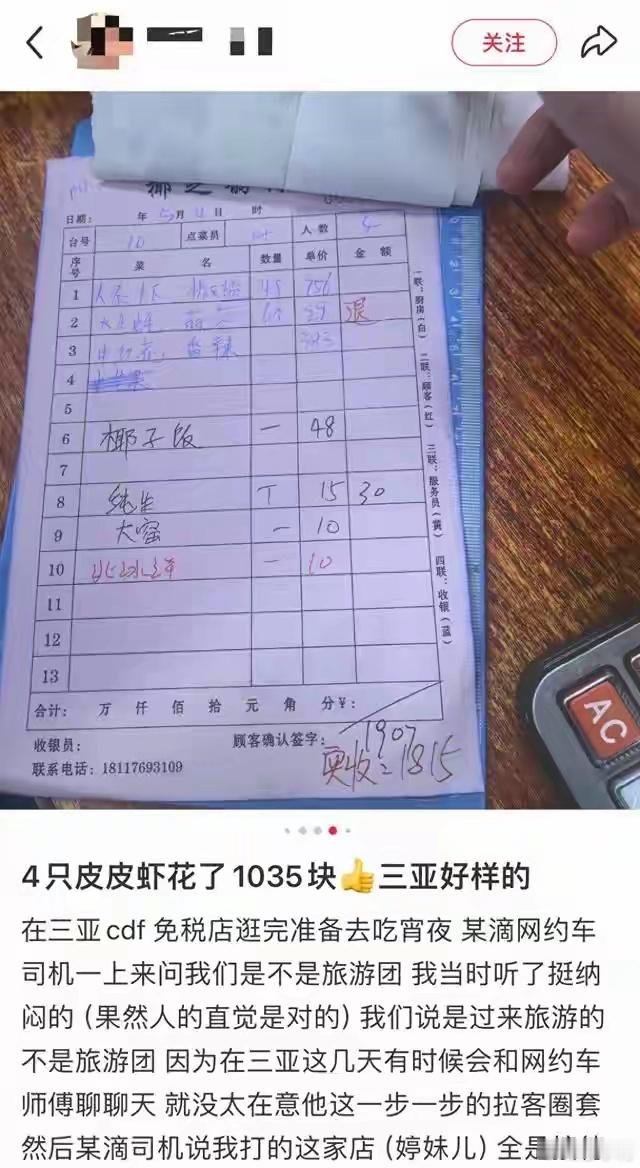 关注
日期： 年 5月 日 时
台号 10 点菜员 人数
序号 菜 名 数量 单价 金额
1 756
2 退
3
4
5
6 椰子饭 一 48
7
8 纯生 T 15 30
9 大窑 一 10
10 一 10
11
12
13
合计： 万 仟 佰 拾 元 角 分￥：
1907
收银员： 顾客确认签字：
实收=1815
联系电话：18117693109
一联：厨房（白） 二联：顾客（红） 三联：服务员（黄） 四联：收银（蓝）
AC
4只皮皮虾花了1035块👍三亚好样的
在三亚cdf 免税店逛完准备去吃宵夜 某滴网约车
司机一上来问我们是不是旅游团 我当时听了挺纳
闷的（果然人的直觉是对的）我们说是过来旅游的
不是旅游团 因为在三亚这几天有时候会和网约车
师傅聊聊天 就没太在意他这一步一步的拉客圈套
然后某滴司机说我打的这家店（婷妹儿）全是